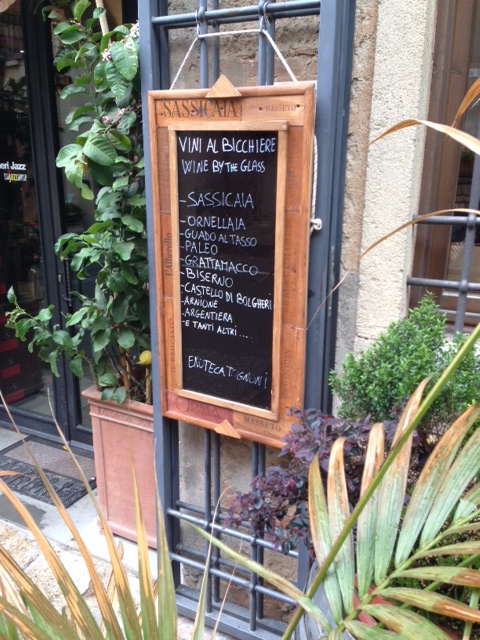 SASSICAIA
MASSETO
VINI AL BICCHIERE
WINE BY THE GLASS
-SASSICAIA
-ORNELLAIA
-GUADO AL TASSO
-PALEO
-GRATTAMACCO
-BISERNO
-CASTELLO DI BOLGHERI
-ARNIONE
-ARGENTIERA
-E TANTI ALTRI....
ENOTECA TOGNONI
MASSETO
Jazz